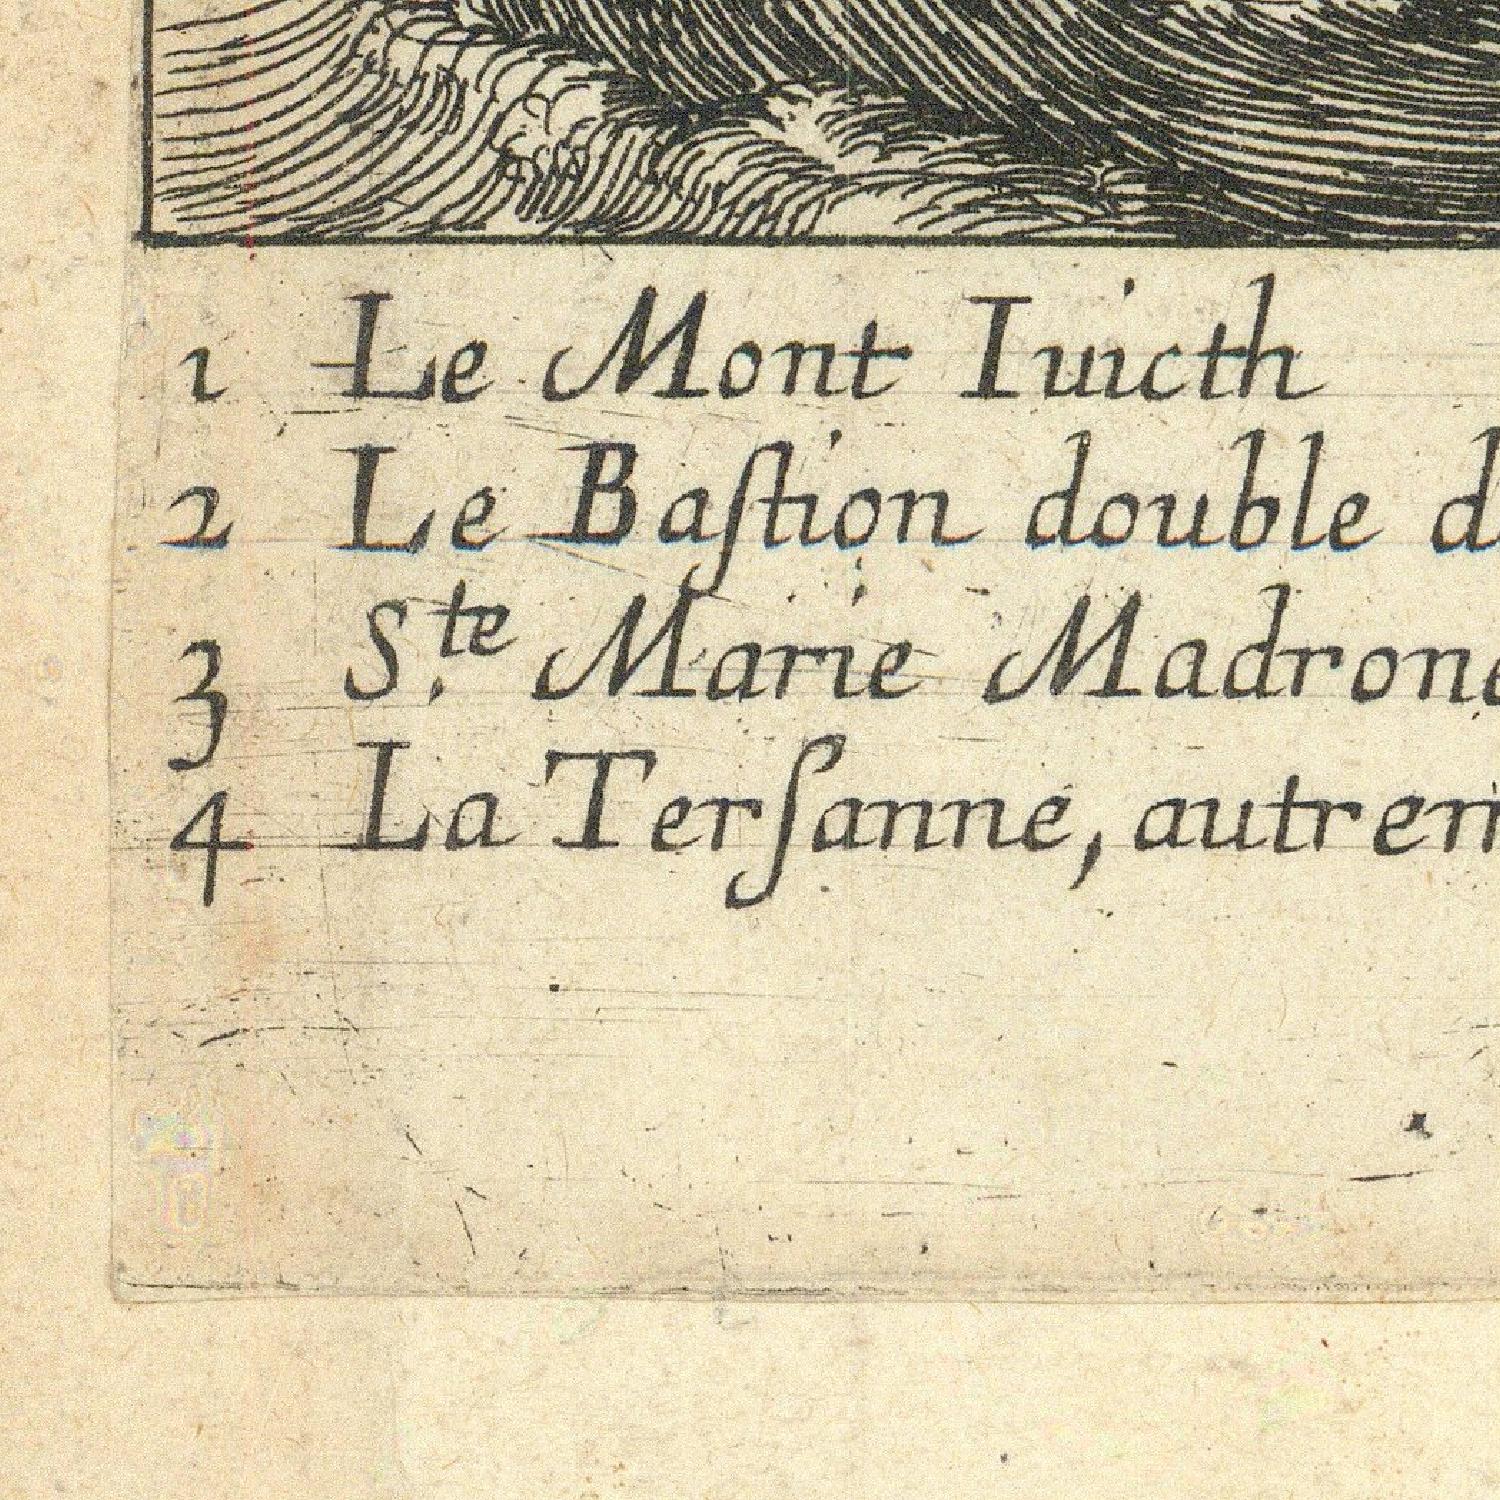 1 Le Mont Iuicth
2 Le Baſtion double d
3 S.te Marie Madron
4 La Terſanne, autrem